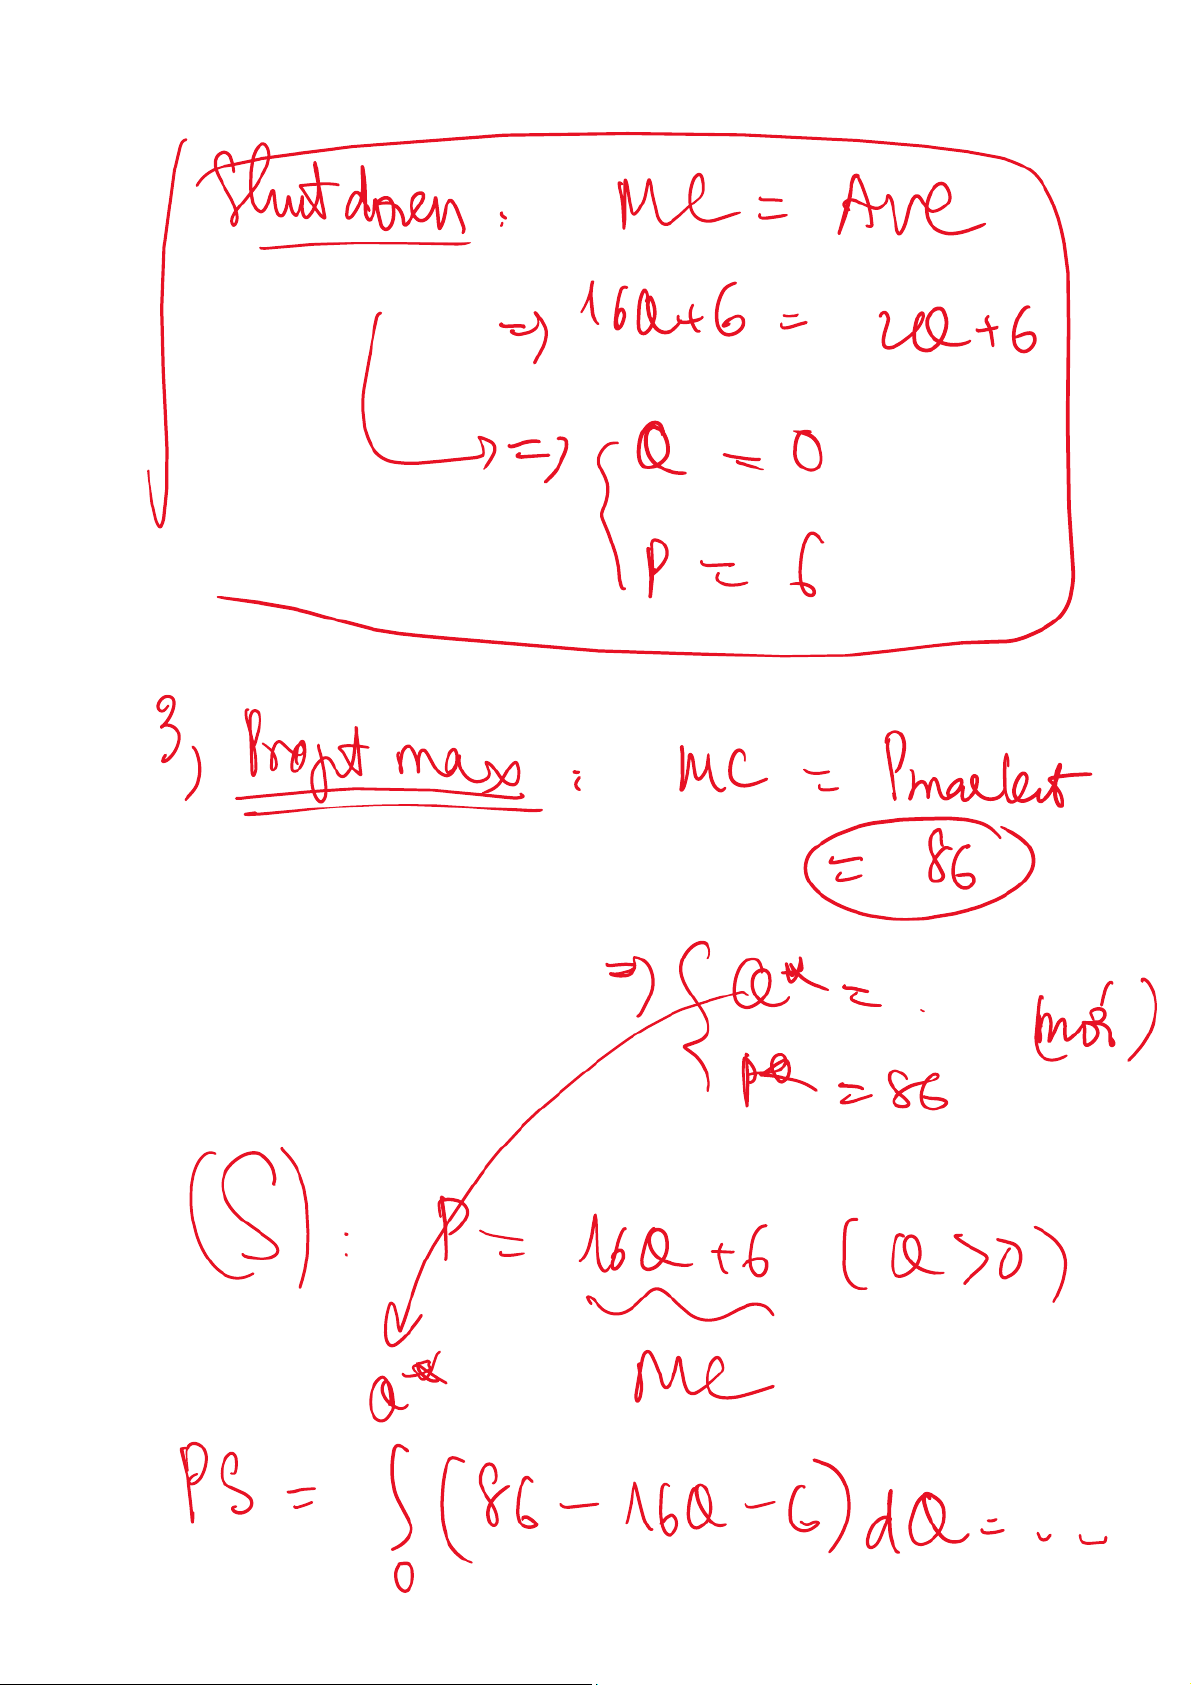 Shutdown : MC = AVC
=> 16Q+6 = 2Q+6
=> { Q = 0
P = 6
3, Profit max : MC = Pmarket
= 86
=> { Q* = . (mới)
= 86
(S) : P = 16Q+6 (Q>0)
MC
Q*
PS = ∫ (86 - 16Q - 6) dQ = ...
0